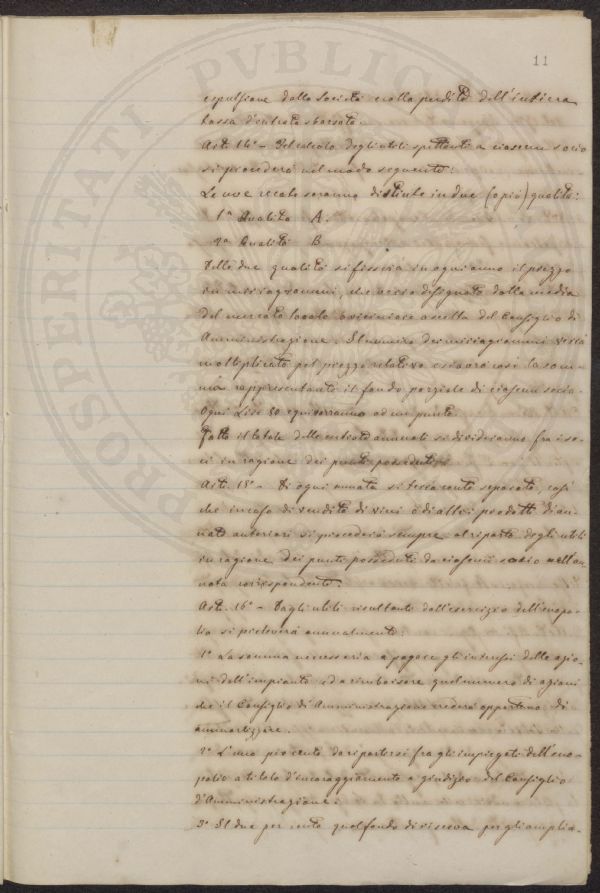 11
espulsione dalla Società e colla perdita dell'intiera
tassa d'entrata sborsata.
Art. 14° - Pel calcolo degli utili spettanti a ciascun socio
si procederà nel modo seguente:
Le uve recate saranno distinte in due (o più) qualità:
1ª Qualità A.
2ª Qualità B.
Delle due qualità si fisserà in ogni anno il prezzo
in miriagrammi, che verrà disegnato dalla media
del mercato locale o viciniore a scelta del Consiglio di
Amministrazione. Il numero dei miriagrammi verrà
moltiplicato pel prezzo relativo e si avrà così la som-
ma rappresentante il fondo parziale di ciascun socio.
Ogni Lire 50 equiverranno ad un punto.
Fatto il totale delle entrate annuali si divideranno fra i so-
ci in ragione dei punti posseduti.
Art. 15° - Di ogni annata si terrà conto separato, così
che in caso di vendita di vini o di altri prodotti di an-
nate anteriori si procederà sempre al riparto degli utili
in ragione dei punti posseduti da ciascun socio nell'an-
nata corrispondente.
Art. 16° - Dagli utili risultanti dall'esercizio dell'enopo-
lio si preleverà annualmente:
1° La somma necessaria a pagare gli interessi delle azio-
ni dell'impianto ed a rimborsare quel numero di azioni
che il Consiglio di Amministrazione vedrà opportuno di
ammortizzare.
2° L'uno per cento da ripartirsi fra gli impiegati dell'eno-
polio a titolo d'incoraggiamento a giudizio del Consiglio
d'Amministrazione:
3° Il due per cento qual fondo di riserva per gli amplia-
PROSPERITATI PVBLICAE